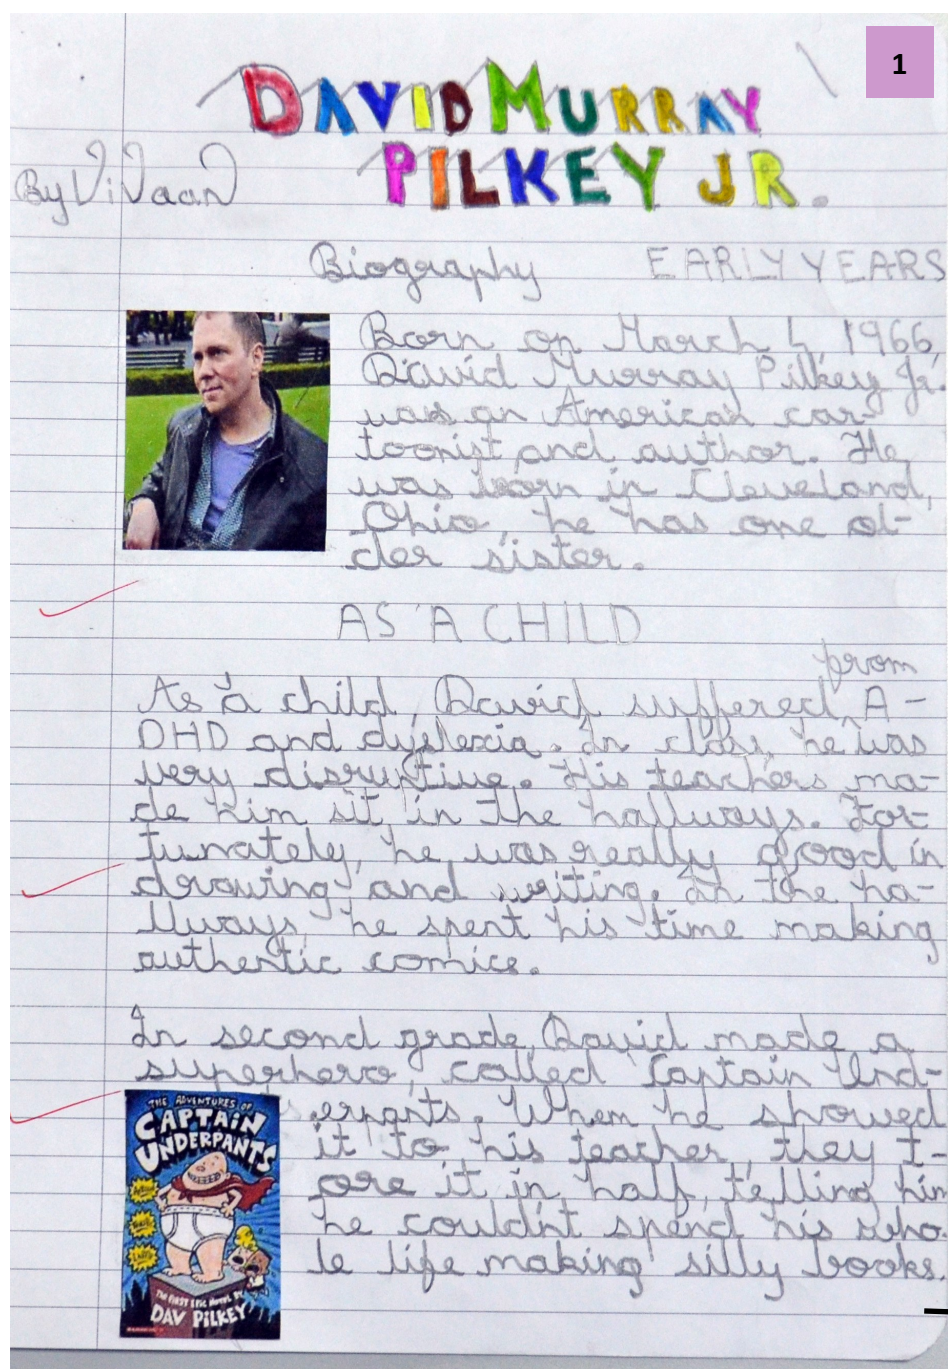 1
DAVID MURRAY
PILKEY JR.
By Vivaan
Biography EARLY YEARS
Born on March 4, 1966,
David Murray Pilkey Jr.
was an American car-
toonist and author. He
was born in Cleveland,
Ohio, he has one ol-
der sister.
AS A CHILD
from
As a child, David suffered A-
DHD and dyslexia. In class, he was
very disruptive. His teachers ma-
de him sit in the hallways. For-
tunately, he was really good in
drawing and writing. In the ha-
llways, he spent his time making
authentic comics.
In second grade, David made a
superhero, called Captain Und-
erpants. When he showed
it to his teacher, they t-
ore it in half, telling him
he couldn't spend his who-
le life making silly books.
THE ADVENTURES OF
CAPTAIN
UNDERPANTS
THE FIRST EPIC NOVEL BY
DAV PILKEY